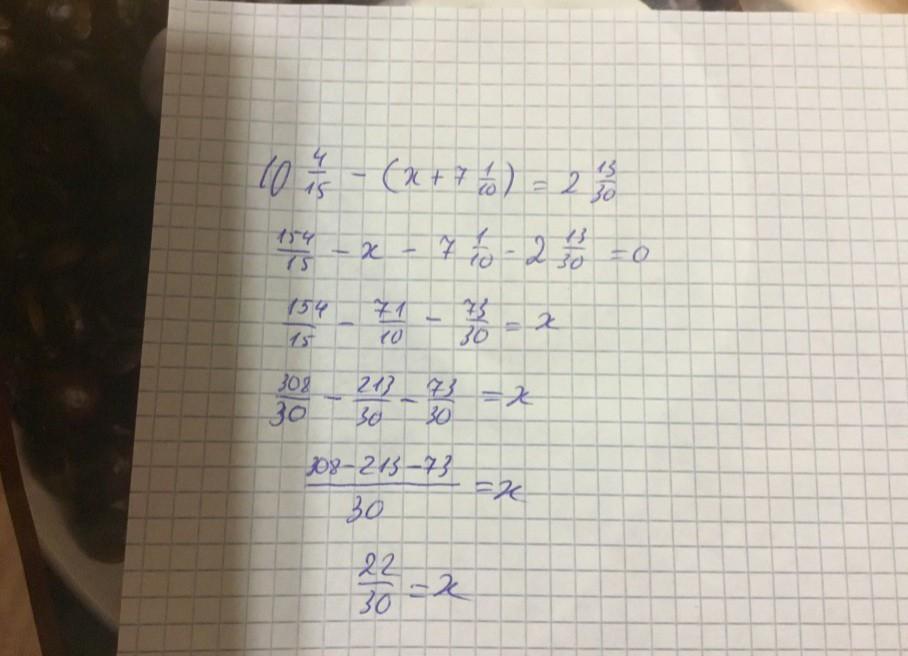 10 4/15 - (x + 7 1/10) = 2 13/30
154/15 - x - 7 1/10 - 2 13/30 = 0
154/15 - 71/10 - 73/30 = x
308/30 - 213/30 - 73/30 = x
308-213-73/30 = x
22/30 = x